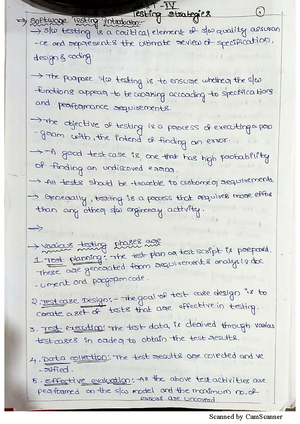 IV
Testing strategies
→ Software Testing Introduction:-
→ S/w testing is a critical element of s/w quality assuran
-ce and represents the ultimate review of specification,
design & coding
→ The purpose s/w testing is to ensure whether the s/w
functions appear to be working according to specifications
and performance requirements.
→ The objective of testing is a process of executing a pro
gram with, the intend of finding an error.
→ A good test case is one that has high probability
of finding an undiscovered error.
→ All tests should be traceable to customer requirements
→ Generally, testing is a process that requires more effor
than any other s/w engineery activity.
→
→ Various testing phases are
1. Test planning:- The test plan or test script is prepared.
These are generated from requirements analysis doc
-ument and program code.
2. Test case Design:- The goal of test case design is to
create a set of tests that are effective in testing.
3. Test execution: The test data is derived through various
test cases in order to obtain the test results.
4. Data collection: The test results are collected and ve
-rified.
5. Effective evaluation:- All the above test activities are
performed on the s/w model and the maximum no. of
errors are uncovered
Scanned by CamScanner